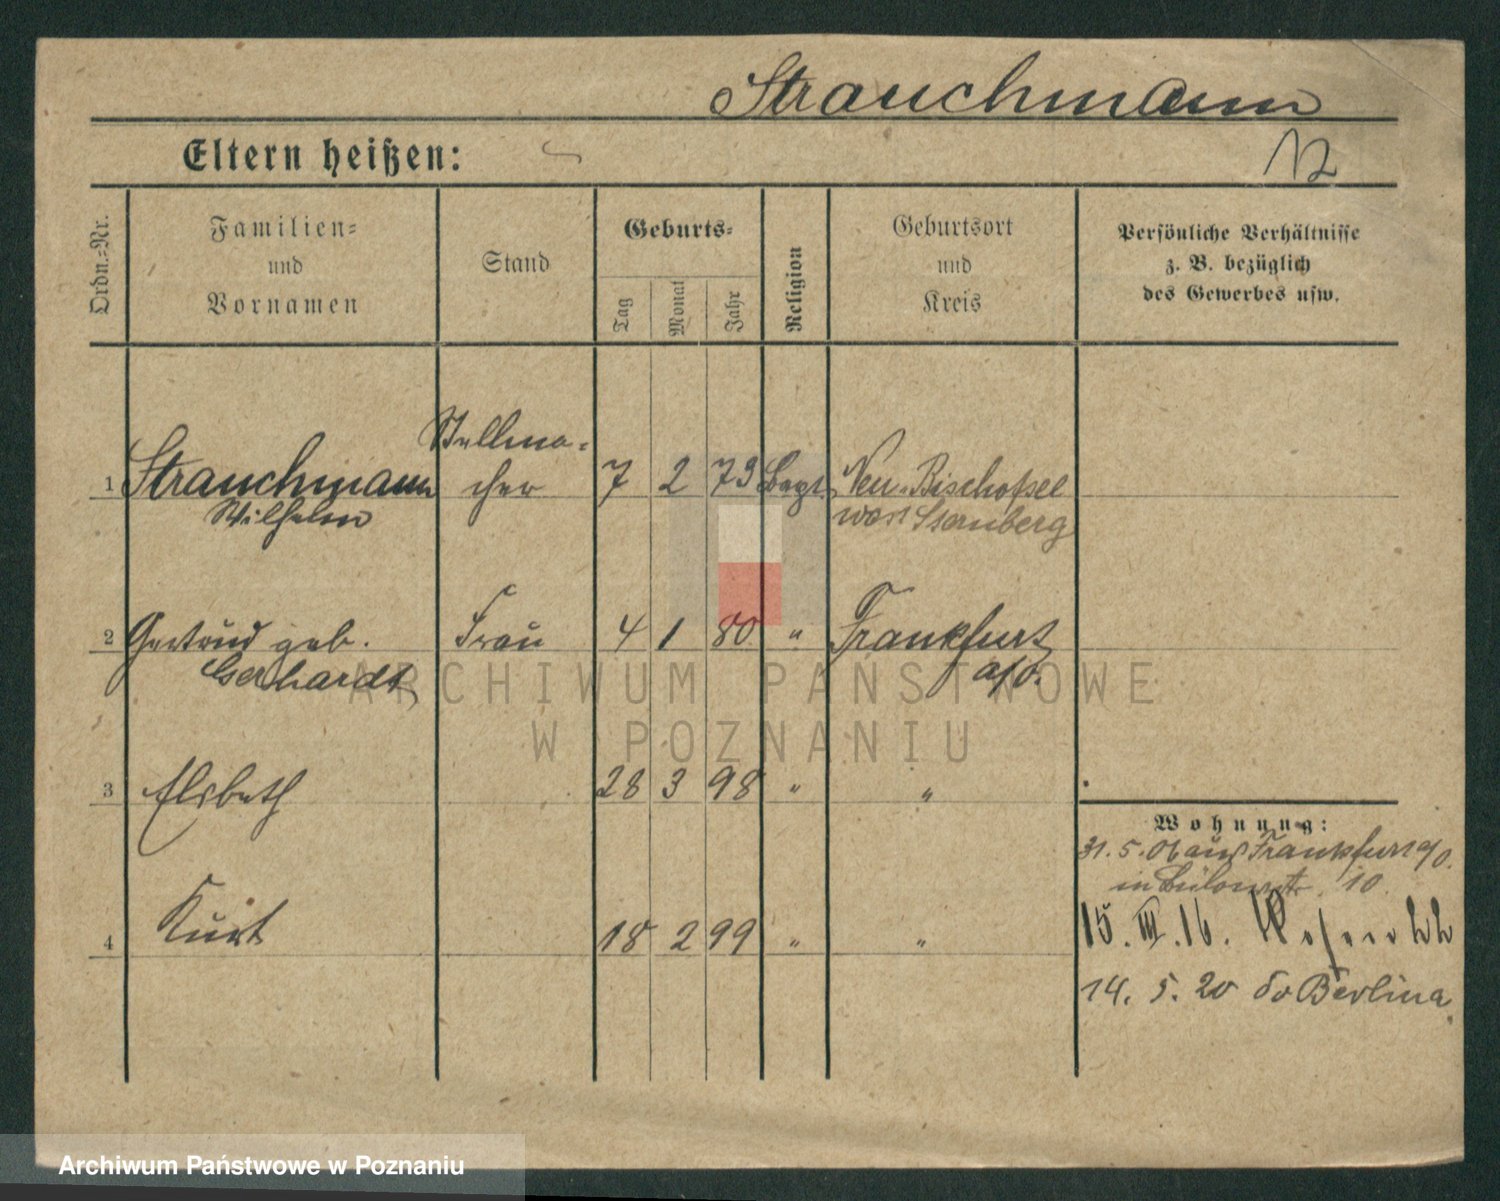 Strauchmann
Eltern heißen:
12
Ordn.-Nr.
Familien-
und
Vornamen
Stand
Geburts-
Tag
Monat
Jahr
Religion
Geburtsort
und
Kreis
Persönliche Verhältnisse
z. B. bezüglich
des Gewerbes usw.
1 Strauchmann Stellma- 7 2 73 Bapt. Neu-Bischofsee
Wilhelm cher Sternberg
2 Gertrud geb. Frau 4 1 80 " Frankfurt
Gerhardt a/O.
3 Elsbeth 28 3 98 " "
4 Kurt 18 2 99 " "
Wohnung:
31. 5. 06 aus Frankfurt a/O.
in Bülowstr. 10
15. III. 16.
14. 5. 20 Berlina
ARCHIWUM PAŃSTWOWE
W POZNANIU
Archiwum Państwowe w Poznaniu